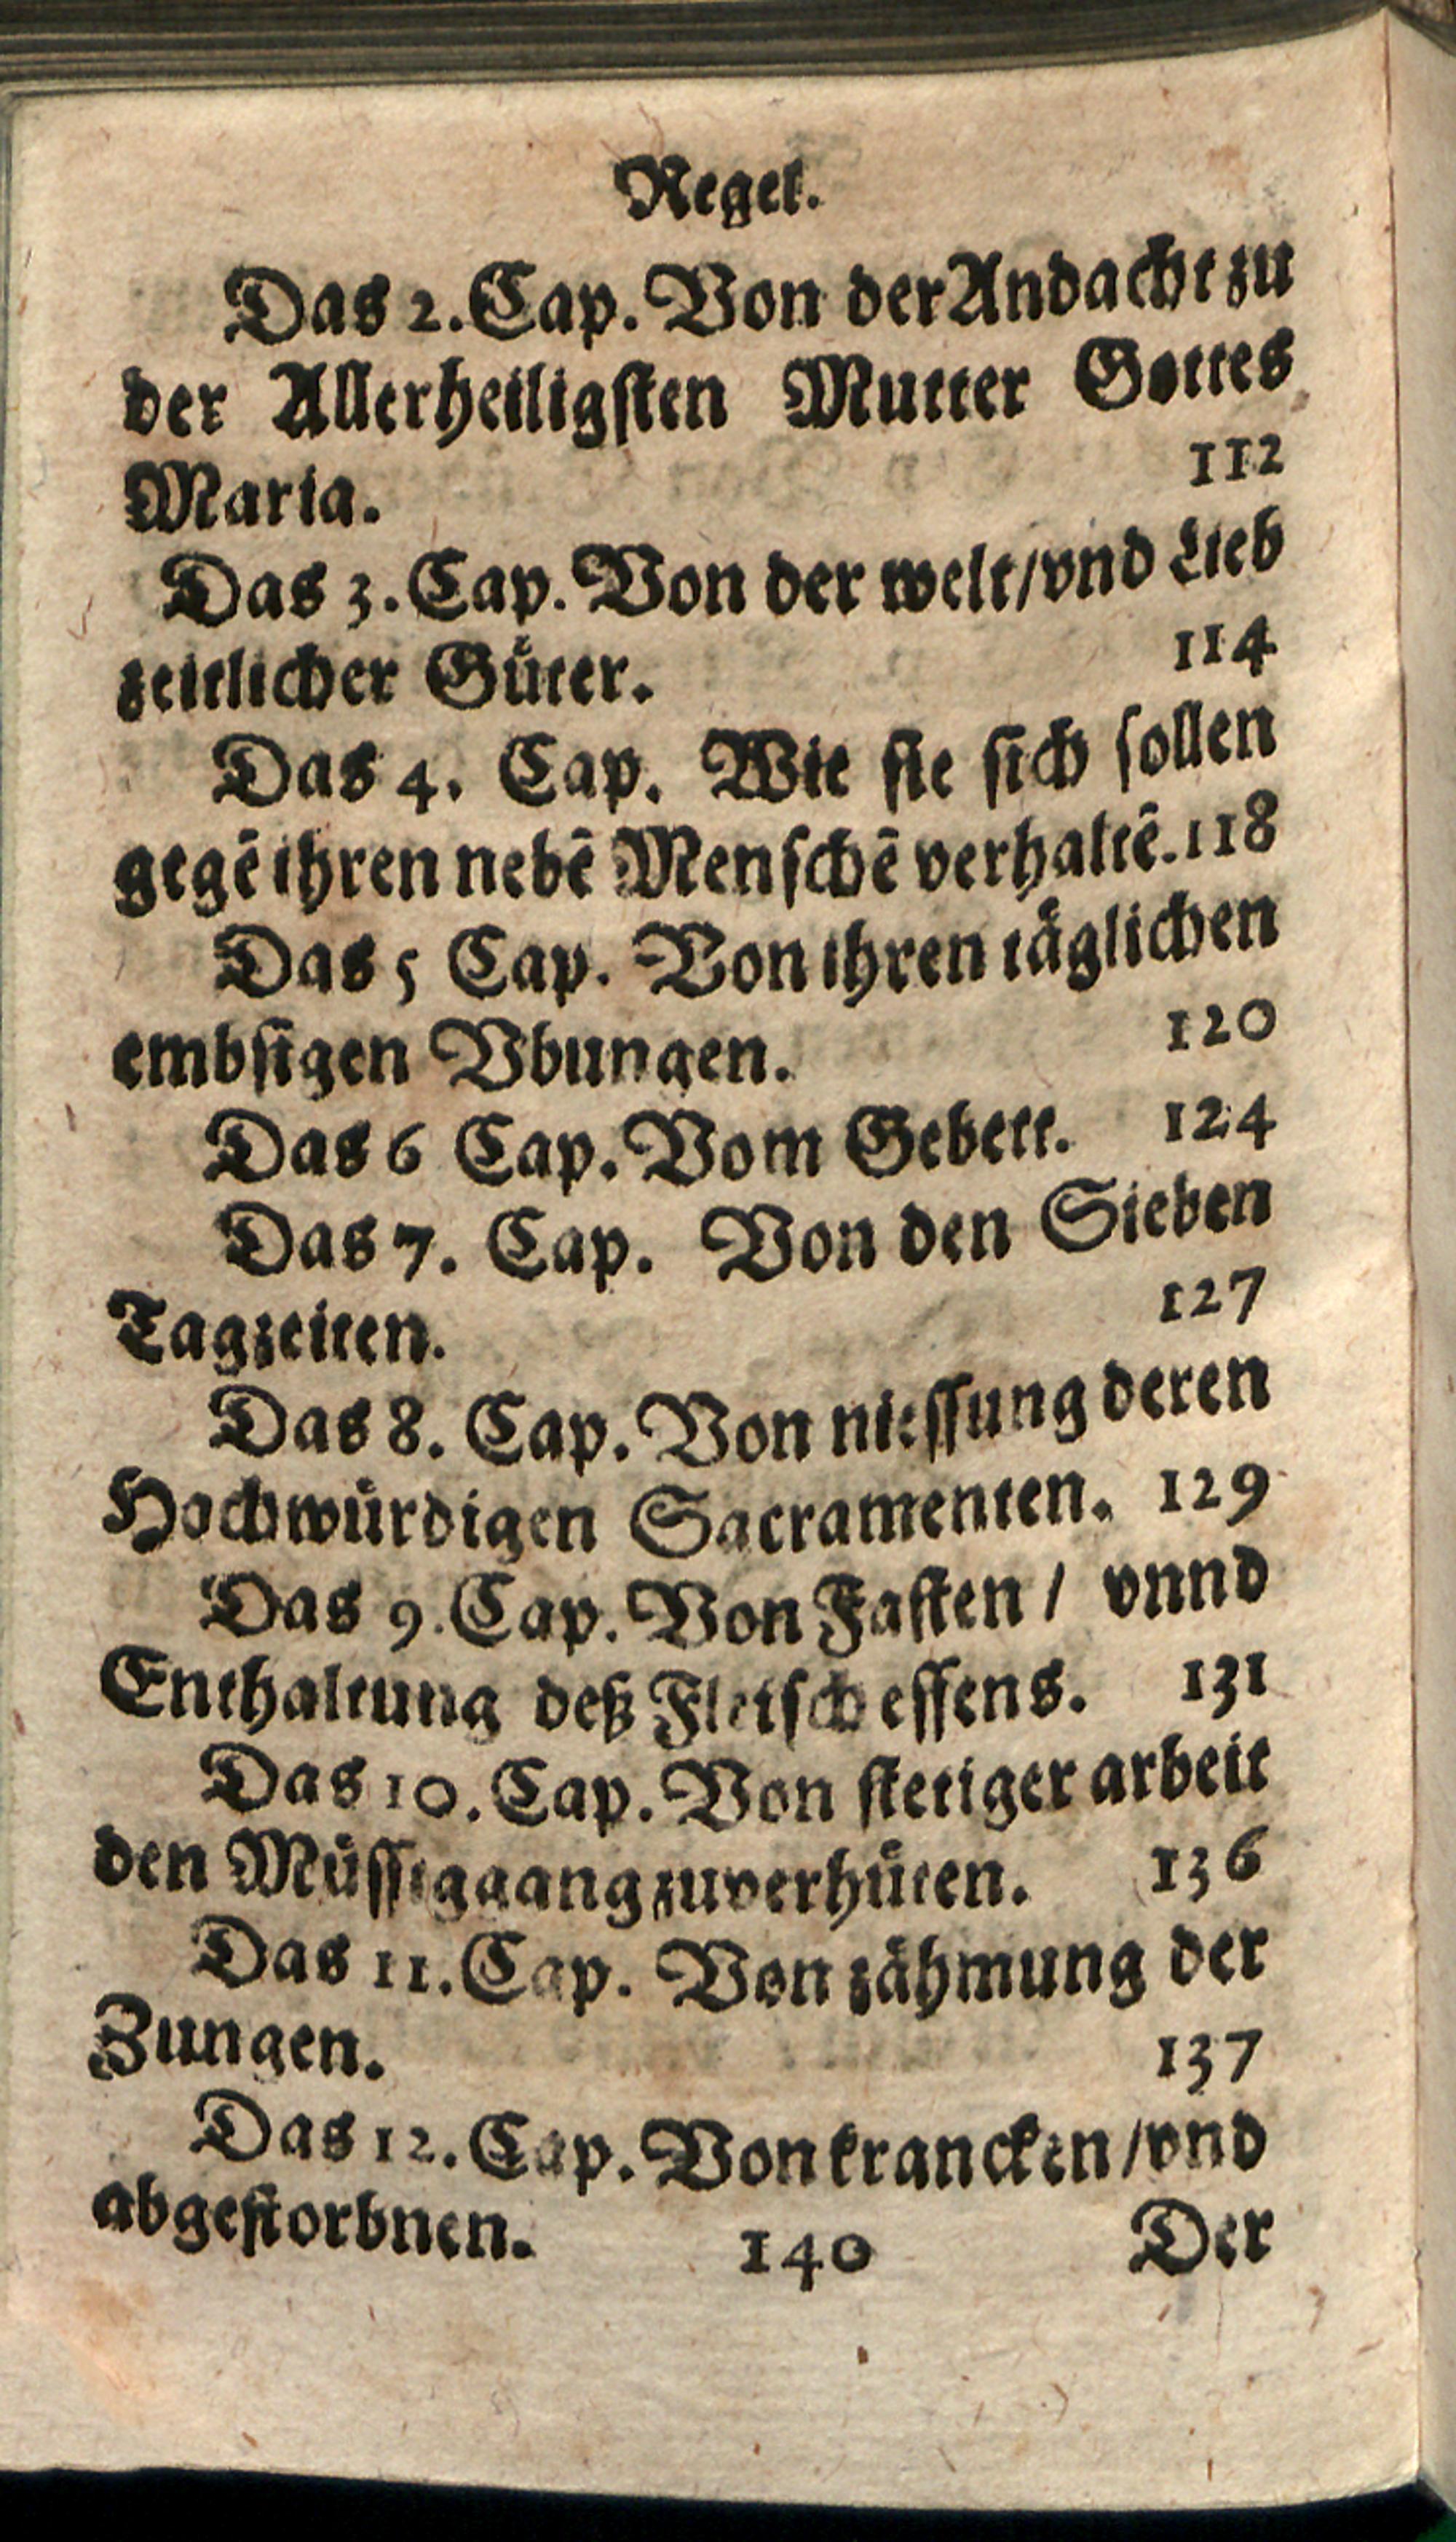 Regel.
Das 2. Cap. Von der Andacht zu
der Allerheiligsten Mutter Gottes
Maria. 112
Das 3. Cap. Von der welt/vnd Lieb
zeitlicher Güter. 114
Das 4. Cap. Wie sie sich sollen
gegē ihren nebē Menschē verhaltē. 118
Das 5 Cap. Von ihren täglichen
embsigen Vbungen. 120
Das 6 Cap. Vom Gebett. 124
Das 7. Cap. Von den Sieben
Tagzeiten. 127
Das 8. Cap. Von niessung deren
Hochwürdigen Sacramenten. 129
Das 9. Cap. Von Fasten / vnnd
Enthaltung deß Fleisch essens. 131
Das 10. Cap. Von stetiger arbeit
den Müssiggang zuverhüten. 136
Das 11. Cap. Von zähmung der
Zungen. 137
Das 12. Cap. Von krancken /vnd
abgestorbnen. 140 Der